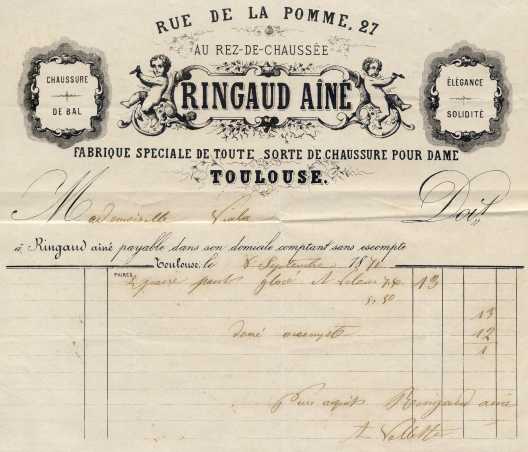 RUE DE LA POMME, 27
AU REZ-DE-CHAUSSÉE
CHAUSSURE
DE BAL
RINGAUD AÎNÉ
ÉLÉGANCE
SOLIDITÉ
FABRIQUE SPECIALE DE TOUTE SORTE DE CHAUSSURE POUR DAME
TOULOUSE.
Mademoiselle Viala Doit
à Ringaud ainé payable dans son domicile comptant sans escompte
Toulouse, le 8 Septembre 187
PAIRES
2 paire glacé 13
5,50
13
12
1
Pour Ringaud ainé